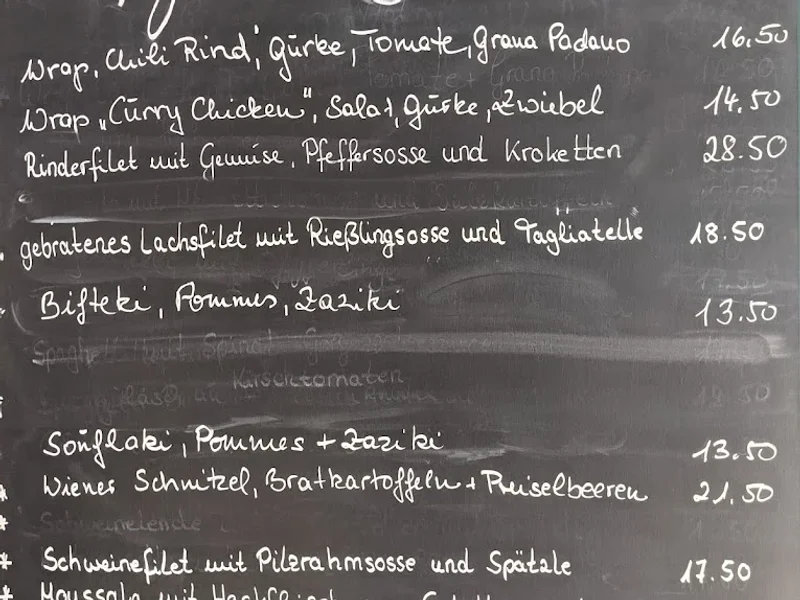 Wrap, Chili Rind, Gürke, Tomate, Grana Padano 16.50
Wrap „Curry Chicken", Salat, Gürke, Zwiebel 14.50
Rinderfilet mit Gemüse, Pfeffersosse und Kroketten 28.50
gebratenes Lachsfilet mit Rießlingsosse und Tagliatelle 18.50
Bifteki, Pommes, Zaziki 13.50
Kirschtomaten
Soüflaki, Pommes + Zaziki 13.50
Wiener Schnitzel, Bratkartoffeln + Preiselbeeren 21.50
Schweinelende
* Schweinefilet mit Pilzrahmsosse und Spätzle 17.50
* Moussaka mit